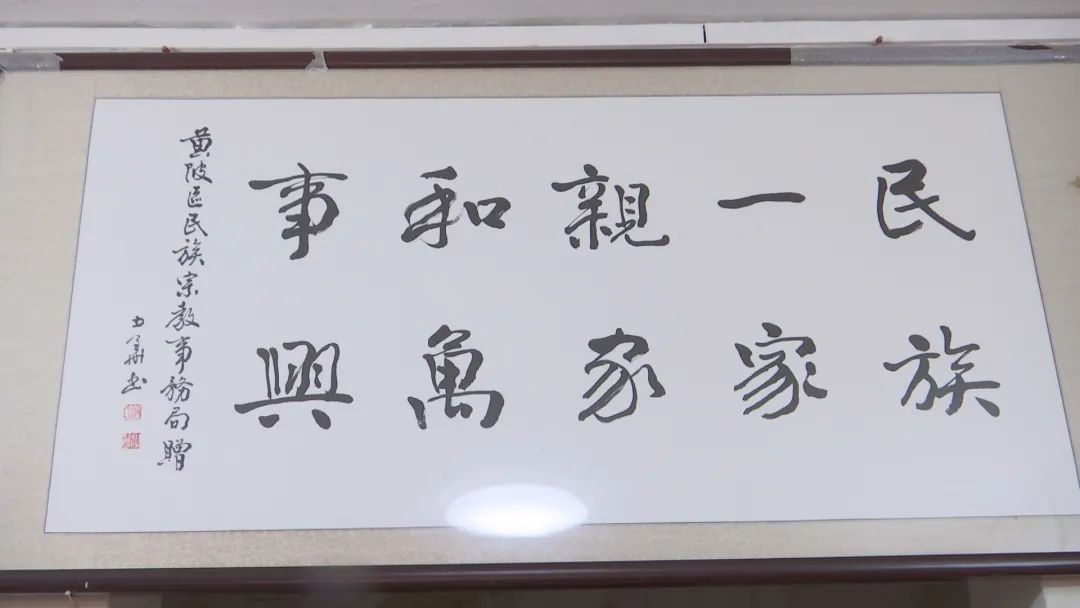 民族
一家
親家
和萬
事興
黄陂區民族宗教事務局贈